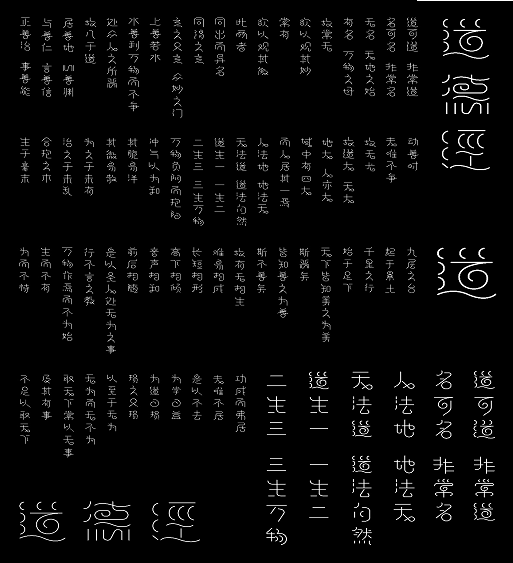 道德经
道可道 非常道
名可名 非常名
无名 天地之始
有名 万物之母
故常无
欲以观其妙
常有
欲以观其徼
此两者
同出而异名
同谓之玄
玄之又玄 众妙之门
上善若水
水善利万物而不争
处众人之所恶
故几于道
居善地 心善渊
与善仁 言善信
正善治 事善能
动善时
夫唯不争
故无尤
故道大 天大
地大 人亦大
域中有四大
而人居其一焉
人法地 地法天
天法道 道法自然
道生一 一生二
二生三 三生万物
万物负阴而抱阳
冲气以为和
其脆易泮
其微易散
为之于未有
治之于未乱
合抱之木
生于毫末
道
九层之台
起于累土
千里之行
始于足下
天下皆知美之为美
斯恶矣
皆知善之为善
斯不善矣
故有无相生
难易相成
长短相形
高下相倾
音声相和
前后相随
是以圣人处无为之事
行不言之教
万物作焉而不为始
生而不有
为而不恃
功成而弗居
夫唯弗居
是以不去
为学日益
为道日损
损之又损
以至于无为
无为而无不为
取天下常以无事
及其有事
不足以取天下
道可道 非常道
名可名 非常名
人法地 地法天
天法道 道法自然
道生一 一生二
二生三 三生万物
道德經